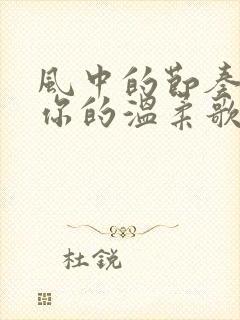 風中的節奏
你的溫柔歌
杜銳